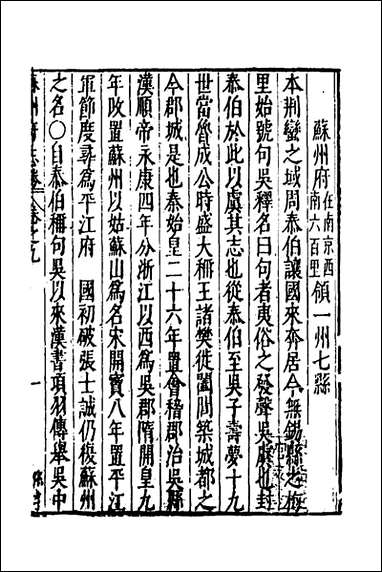 蘇州府在南京西南六百里領一州七縣
本荆蠻之域周泰伯讓國來奔居今無錫縣之梅
里始號句吳釋名曰句者夷俗之發聲吳虞也封
泰伯於此以虞其志也從泰伯至吳子壽夢十九
世當魯成公時盛大稱王諸樊徙闔閭築城都之
今郡城是也秦始皇二十六年置會稽郡治吳縣
漢順帝永康四年分浙江以西爲吳郡隋開皇九
年改置蘇州以姑蘇山爲名宋開寶八年置平江
軍節度尋爲平江府 國初破張士誠仍復蘇州
之名○自泰伯稱句吳以來漢書項羽傳舉吳中
蘇州府志
一